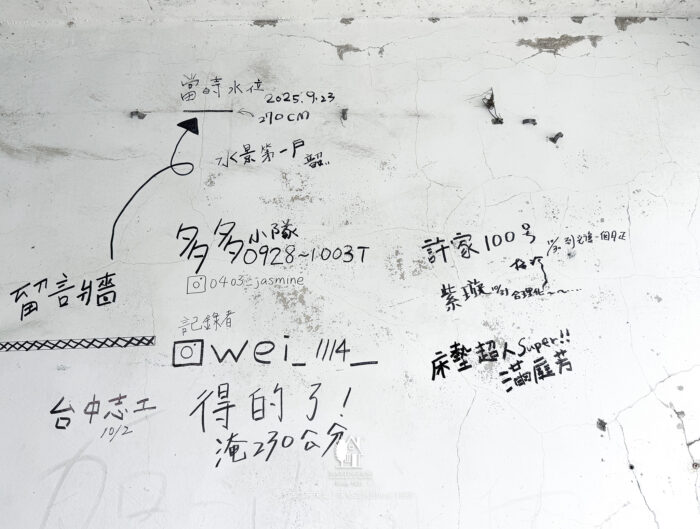 當時水位
2025.9.23
270CM
水景第一戶
韶
留言牆
多多小隊
0928~1003T
0403_jasmine
記錄者
wei_1114_
台中志工
10/2
得的了！
淹230公分
許家100号
紫璇
合理化~~...
床墊超人Super!!
滿庭芳